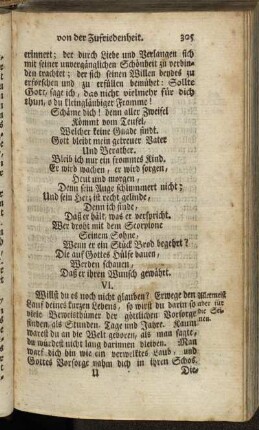 von der Zufriedenheit. 305
erinnert; der durch Liebe und Verlangen sich
mit seiner unvergänglichen Schönheit zu verbin-
den trachtet; der sich seinen Willen beydes zu
erforschen und zu erfüllen bemühet: Sollte
Gott, sage ich, das nicht vielmehr für dich
thun, o du kleingläubiger Fromme!
Schäme dich! denn aller Zweifel
Kömmt vom Teufel,
Welcher keine Gnade findt.
Gott bleibt mein getreuer Vater
Und Berather.
Bleib ich nur ein frommes Kind,
Er wird wachen, er wird sorgen,
Heut und morgen,
Denn sein Auge schlummert nicht;
Und sein Herz ist recht gelinde,
Denn ich finde,
Daß er hält, was er verspricht.
Wer droht mit dem Scorpione
Seinem Sohne,
Wenn er ein Stück Brod begehrt?
Die auf Gottes Hülfe bauen,
Werden schauen,
Daß er ihren Wunsch gewährt.
VI.
Willst du es noch nicht glauben? Erwege den Allermeist
Lauf deines kurzen Lebens, so wirst du darin so aber für
viele Beweisthümer der göttlichen Vorsorge die Sei-
finden, als Stunden, Tage und Jahre. Kaum nen.
warest du an die Welt geboren, als man sagte,
du würdest nicht lang darinnen bleiben. Man
warf dich hin wie ein verwelktes Laub, und
Gottes Vorsorge nahm dich in ihren Schos.
U Die-